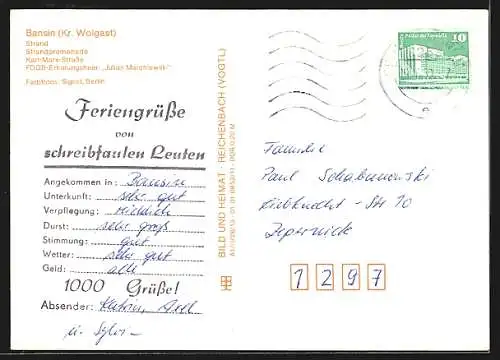 Bansin (Kr. Wolgast)
Strand
Strandpromenade
Karl-Marx-Straße
FDGB-Erholungsheim „Julian Marchlewski“
Farbfotos: Signet, Berlin
Feriengrüße
von
schreibfaulen Leuten
Angekommen in: Bansin
Unterkunft: sehr gut
Verpflegung: reichlich
Durst: sehr groß
Stimmung: gut
Wetter: sehr gut
Geld: alle
1000 Grüße!
Absender: Katrin, Axel
u. Sylvi
BILD UND HEIMAT REICHENBACH (VOGTL)
10
Familie
Paul Schabanowski
Liebknecht-Str 10
Zepernick
1 2 9 7